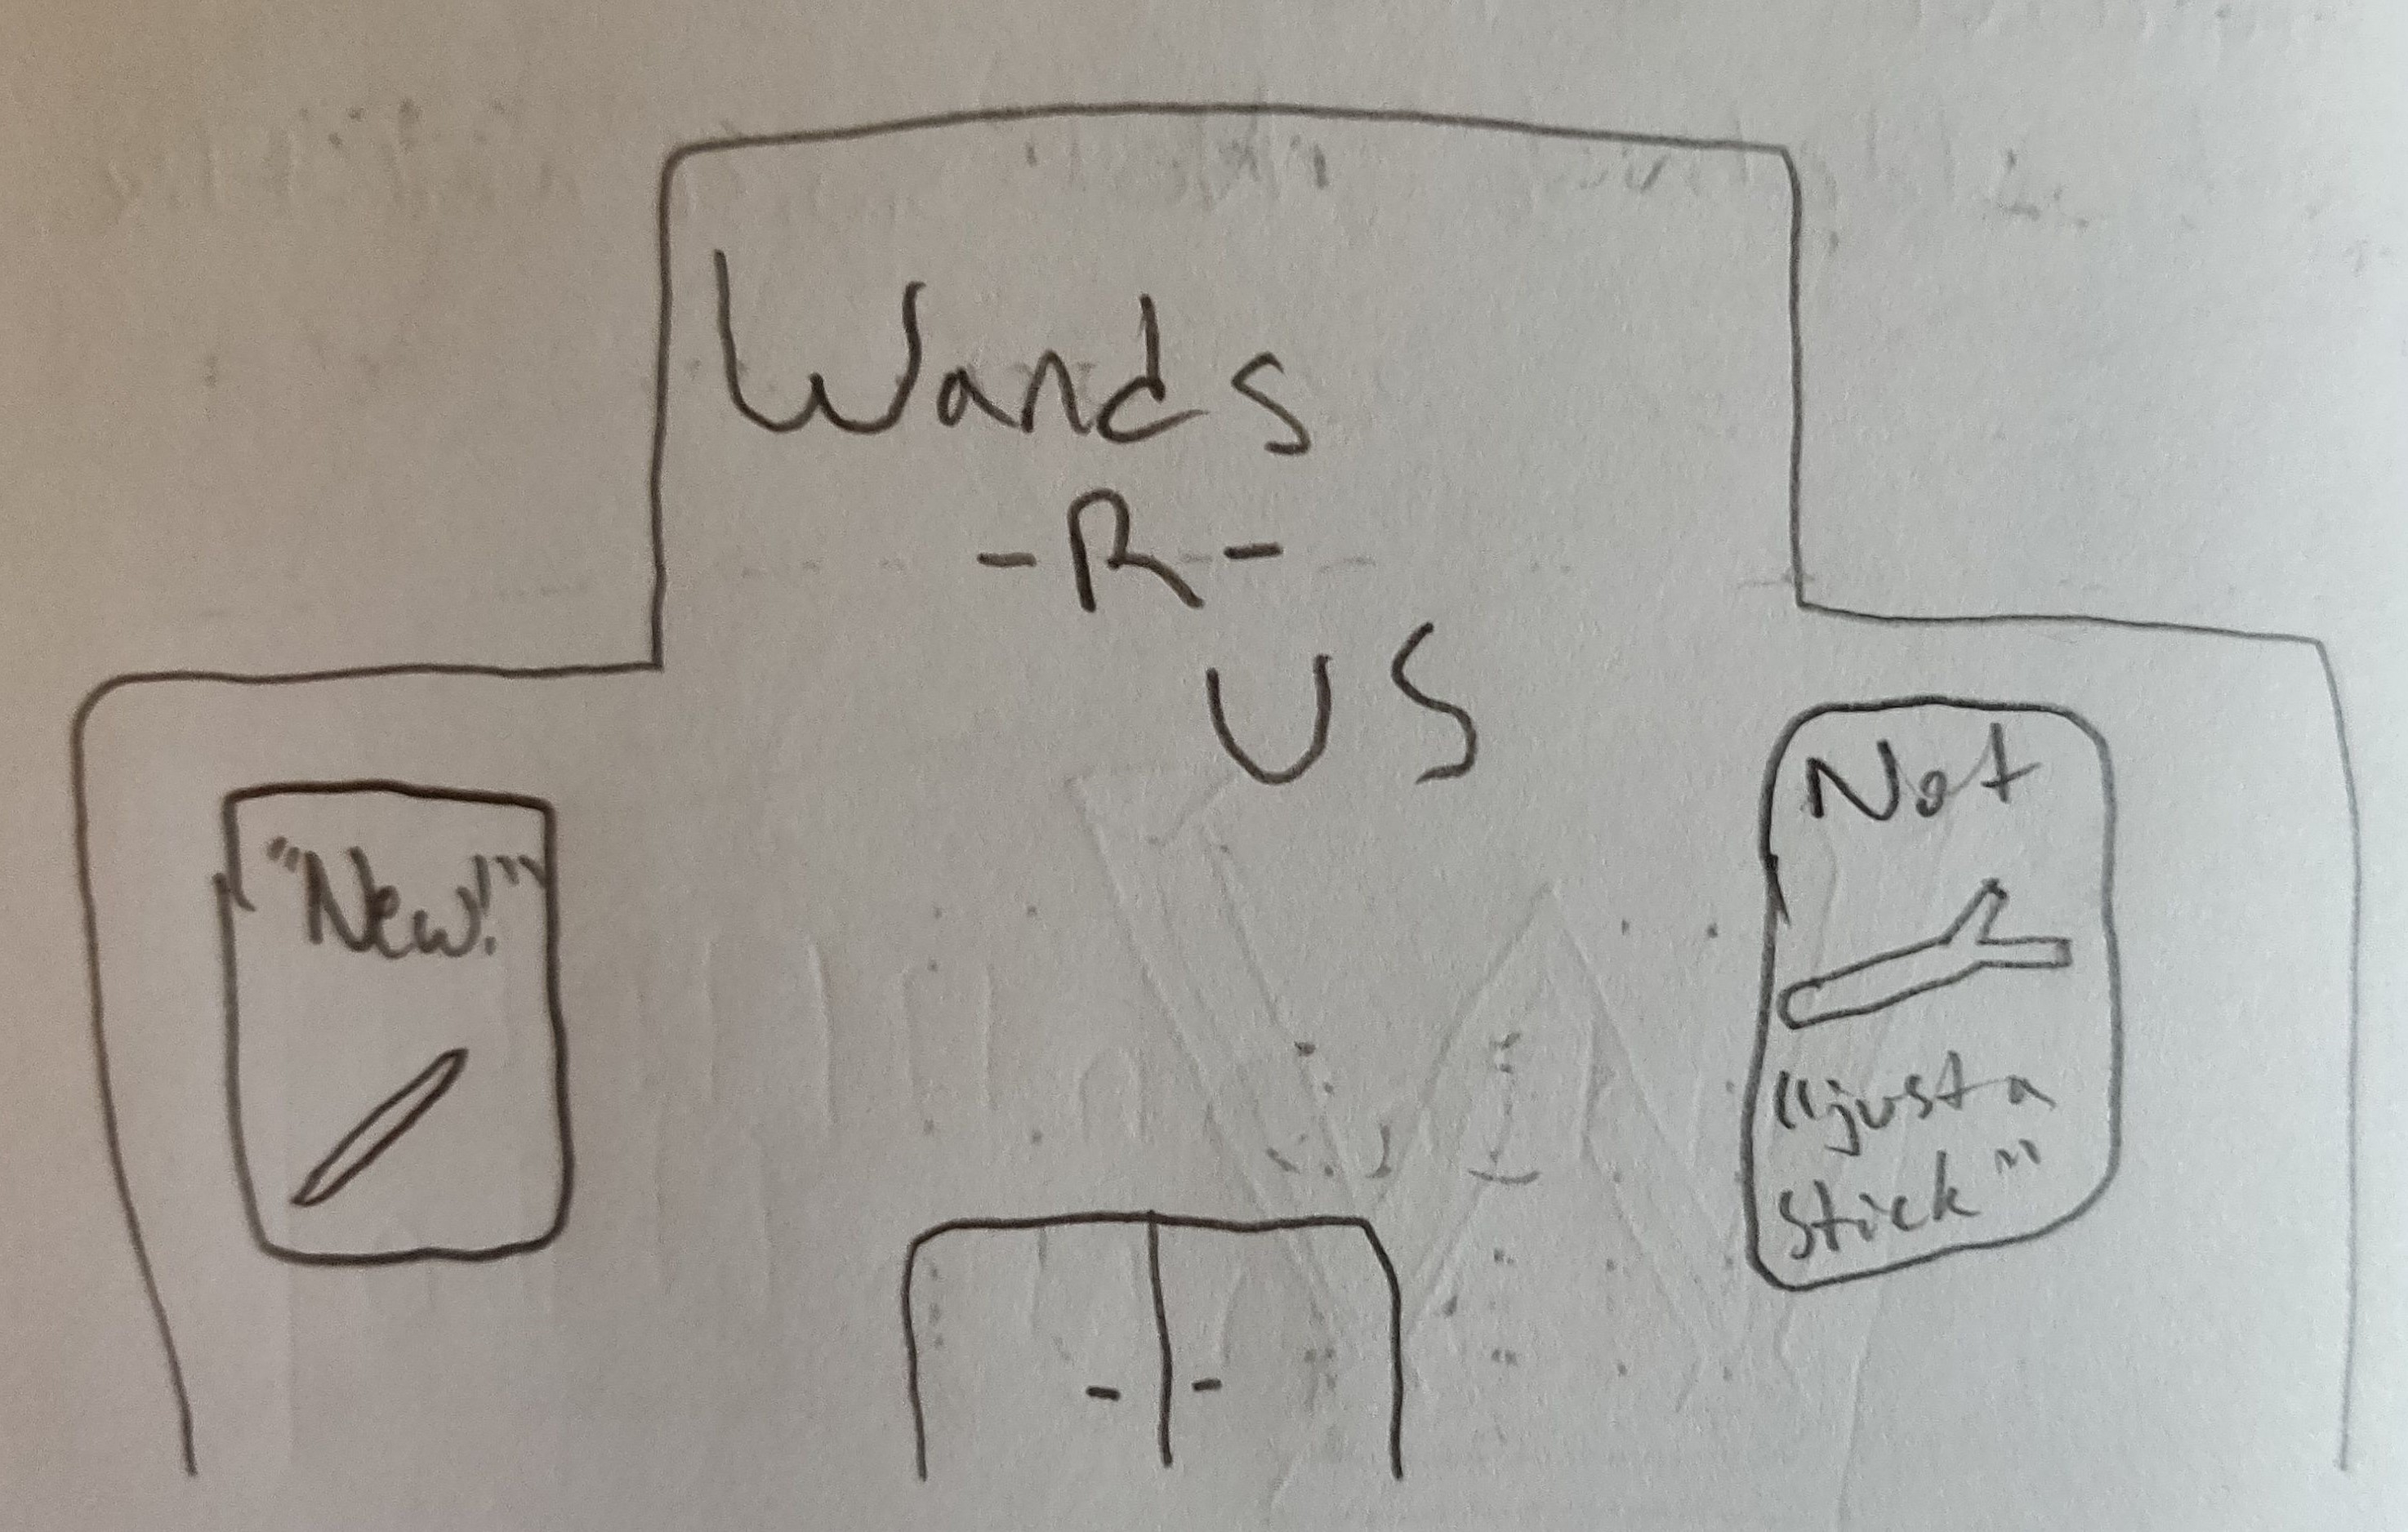 Wands
-R-
US
"New!"
Not
"just a
stick"